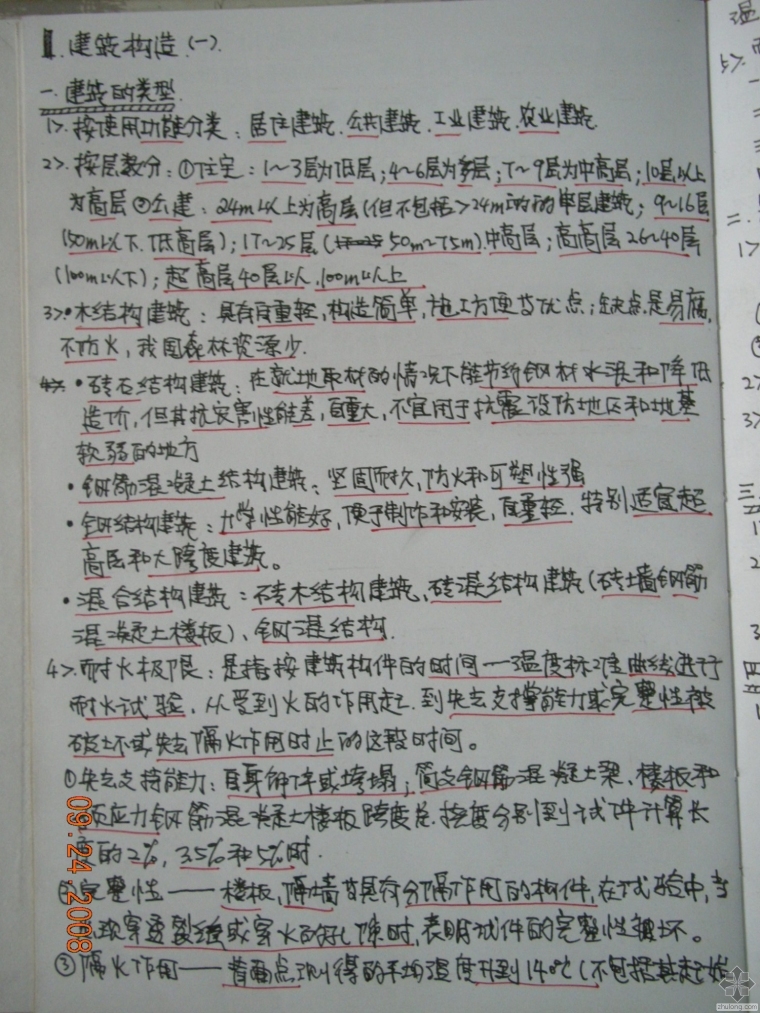 Ⅱ.建筑构造(一).
一.建筑的类型
1>.按使用功能分类:居住建筑.公共建筑.工业建筑.农业建筑
2>.按层数分:①住宅:1~3层为低层;4~6层为多层;7~9层为中高层;10层以上
为高层②公建:24m以上为高层(但不包括>24m的单层建筑;9~16层
(50m以下.低高层);17~25层(50m~75m)中高层;高高层26~40层
(100m以下);超高层40层以.100m以上
3>•木结构建筑:具有自重轻,构造简单,施工方便等优点;缺点是易腐,
不防火,我国森林资源少.
•砖石结构建筑:在就地取材的情况下能节约钢材水泥和降低
造价,但其抗灾害性能差,自重大,不宜用于抗震设防地区和地基
软弱的地方
•钢筋混凝土结构建筑:坚固耐久,防火和可塑性强
•钢结构建筑:力学性能好,便于制作和安装,自重轻.特别适宜超
高层和大跨度建筑。
•混合结构建筑:砖木结构建筑,砖混结构建筑(砖墙钢筋
混凝土楼板),钢混结构.
4>.耐火极限:是指按建筑构件的时间—温度标准曲线进行
耐火试验,从受到火的作用起.到失去支撑能力或完整性被
破坏或失去隔火作用时止的这段时间。
①失去支持能力:自身解体或垮塌;简支钢筋混凝土梁、楼板和
预应力钢筋混凝土楼板跨度总挠度分别到试件计算长
度的2%,3.5%和5%时.
②完整性——楼板,隔墙等具有分隔作用的构件,在试验中,当
出现穿透裂缝或穿火的孔隙时,表明试件的完整性被坏。
③隔火作用——背面点测得的平均温度升到140℃(不包括其起始
09.24.2008
混
5>.
二.
1>
2>
3>
三.
四
zhulong.com